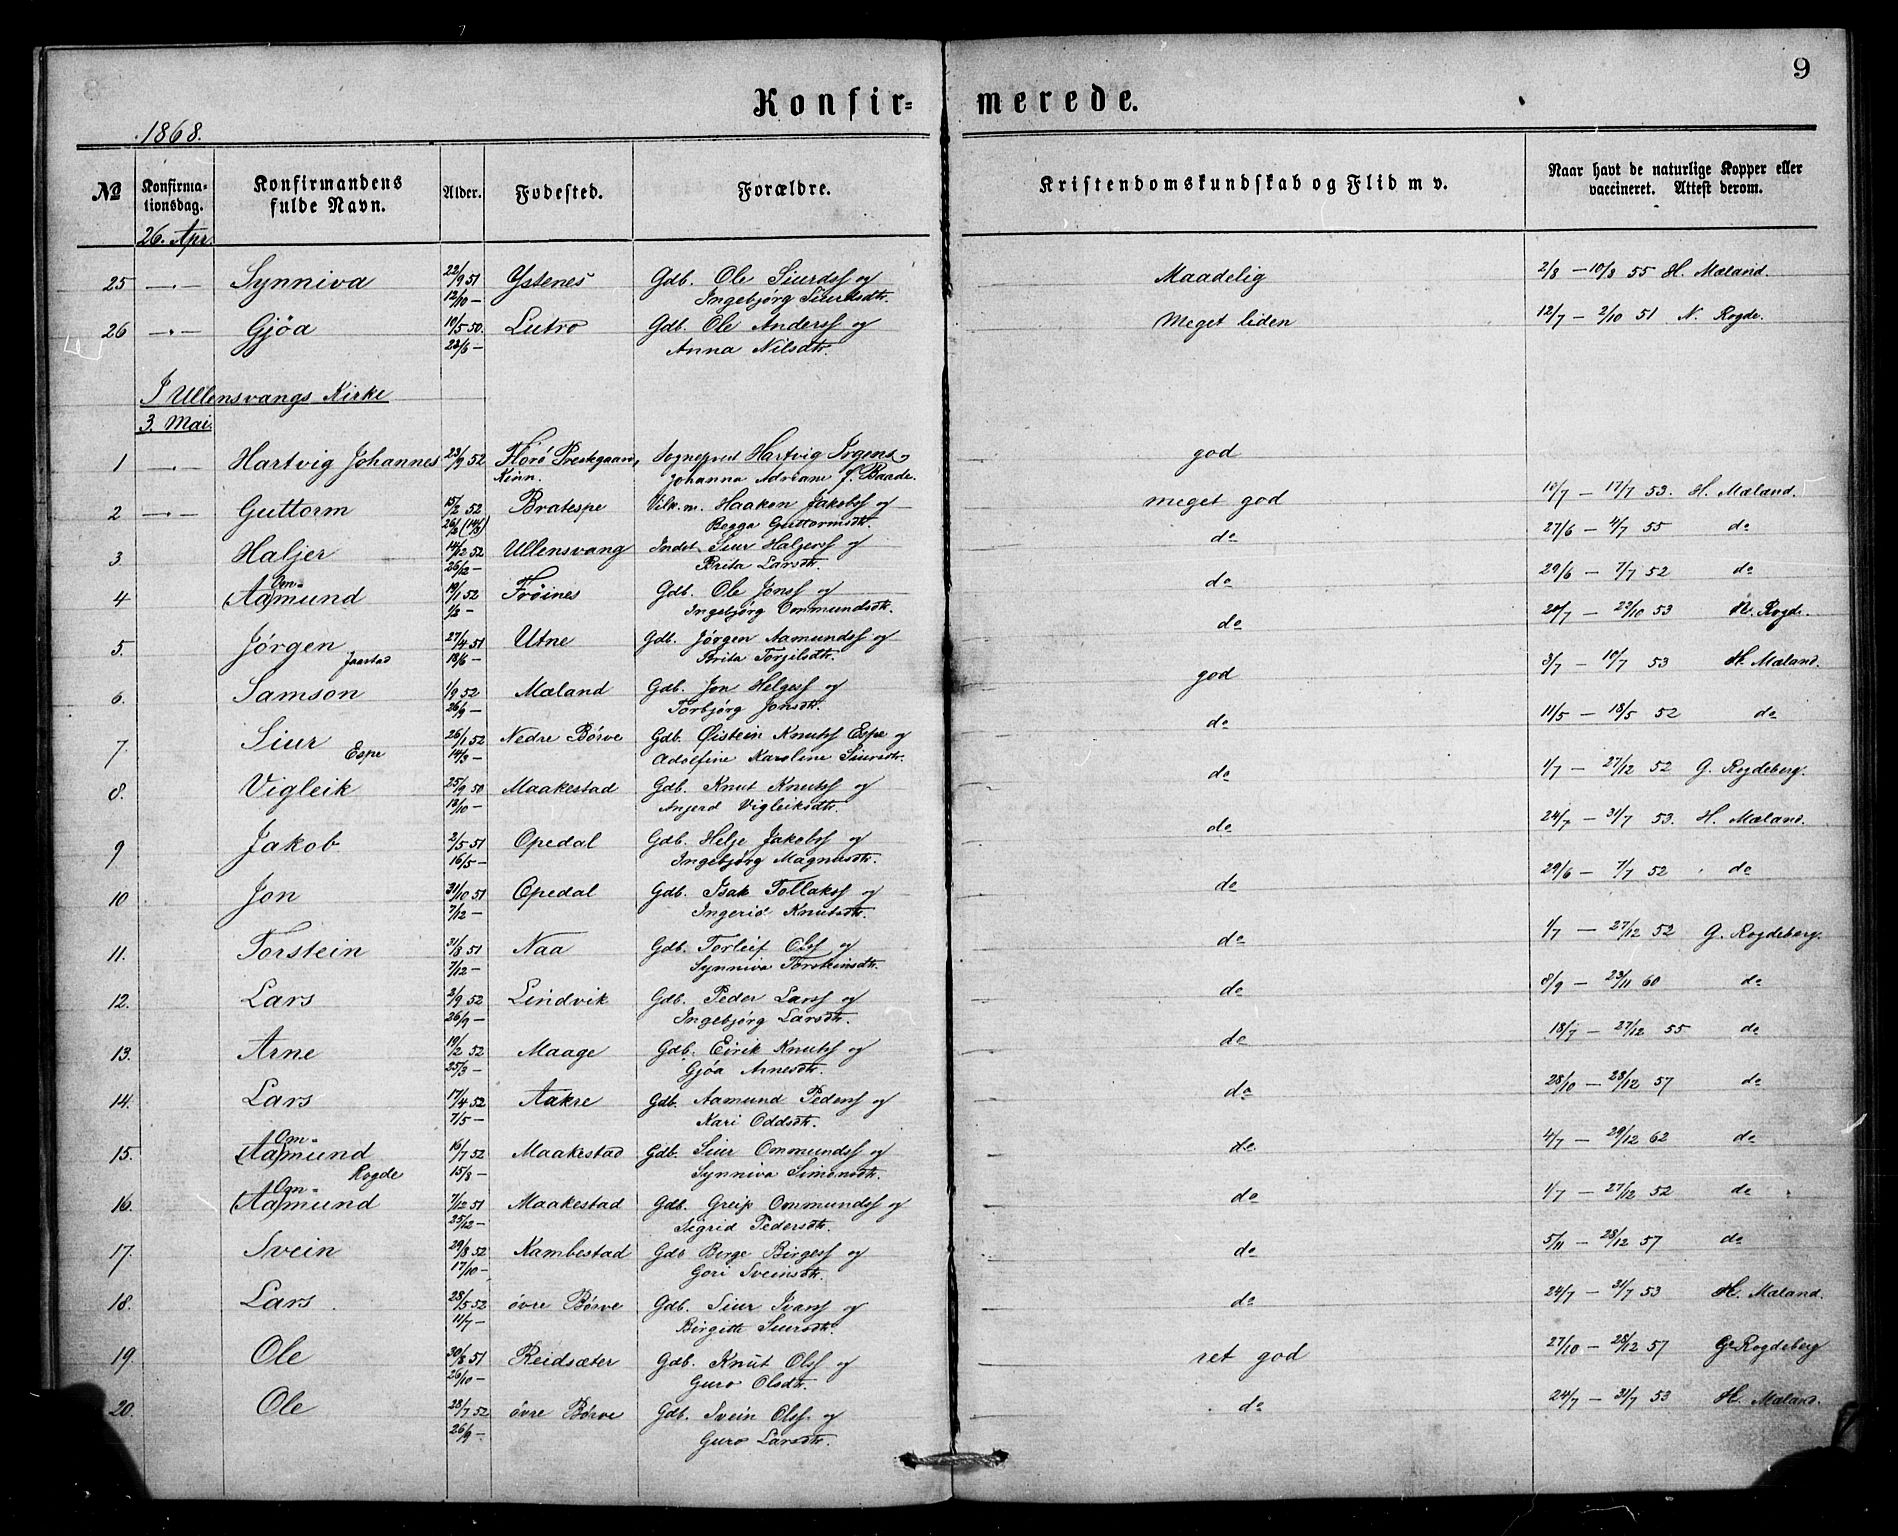 9
Konfir- merede.
1868.
No Konfirmationsdag. Konfirmandens fulde Navn. Alder. Fodested. Forældre. Kristendomskundskab og Flid m v. Naar havt de naturlige Kopper eller vaccineret. Attest derom.
26. Apr.
25 —„— Synniva 22/9 51 Ystenes Gdb. Ole Siurdsf og Maadelig 2/8 — 10/8 55 H. Mæland.
12/10 — Ingebjørg Siurdsdtr.
26 —„— Gjøa 10/5 50. Lutro Gdb. Ole Andersf og Meget liden 12/7 — 2/10 51 N. Rogde.
23/6 — Anna Nilsdtr.
I Ullensvangs Kirke
3. Mai.
1 —„— Hartvig Johannes 23/9 52 Florø Prestgaard, Sognepres Hartvig Irgens og god
Kinn. Johanna Adriane f. Baade.
2 —„— Guttorm 15/2 52 Bratespe Vilk.m. Haakon Jakobsf og meget god 10/7 — 17/7 53. H. Mæland.
Begga Guttormsdtr.
3. Haljer 14/12 52 Ullensvang Indst. Siur Haljersf og do 27/6 — 4/7 55 do
26/12 — Brita Larsdtr.
Om-
4 (Aa)mund 19/1 52 Frøines Gdb. Ole Jonsf og do 29/6 — 7/7 52 do
1/2 — Ingebjørg Ommundsdtr.
5. Jørgen 27/4 51 Utne Gdb. Jørgen Aamundsf og do 20/7 — 23/10 53 N. Rogde.
Jaastad 18/6 — Brita Torjilsdtr.
6. Samson 1/9 52 Mæland Gdb. Jon Helgesf og god 3/7 — 10/7 53 H. Mæland.
26/9 — Torbjørg Jonsdtr.
7. Siur 26/1 52 Nedre Børve Gdb. Øistein Knutsf Espe og do 11/5 — 18/5 52 do
Espe 14/3 — Adolfine Karoline Siursdtr.
8. Vigleik 25/9 50 Maakestad Gdb. Knut Knutsf og do 1/7 — 27/12 52 G. Rogdeberg.
12/10 — Anjerd Vigleiksdtr.
9 Jakob 2/5 51 Opedal Gdb. Helje Jakobsf og do 24/7 — 31/7 53. H. Mæland.
16/5 — Ingebjørg Magnusdtr.
10 Jon 31/10 51 Opedal Gdb. Isak Tollaksf og do 29/6 — 7/7 52 do
7/12 — Ingerid Knutsdtr.
11. Torstein 31/8 51 Naa Gdb. Torleif Olsf og do 1/7 — 27/12 52 G. Rogdeberg.
7/12 — Synniva Torsteinsdtr.
12. Lars 2/9 52 Lindvik Gdb. Peder Larsf og do 8/9 — 23/11 60 do
26/9 — Ingebjørg Larsdtr.
13. Arne 19/2 52 Maage Gdb. Eirik Knutsf og do 18/7 — 27/12 55 do
25/3 — Gjøa Arnesdtr.
14. Lars 17/4 52 Aakre Gdb. Aamund Pedersf og do 28/10 — 28/12 57 do
7/5 — Kari Oddsdtr.
Om-
15. (Aa)mund 16/7 52 Maakestad Gdb. Siur Ommundsf og do 4/7 — 29/12 62 do
Rogde 15/8 — Synniva Simonsdtr.
Om-
16. (Aa)mund 7/12 51 Maakestad Gdb. Greip Ommundsf og do 1/7 — 27/12 52 do
25/12 — Sigrid Pedersdtr.
17. Svein 29/8 52 Kambestad Gdb Birge Birgesf og do 5/11 — 28/12 57 do
17/10 — Gori Sveinsdtr.
18. Lars 28/5 52 øvre Børve Gdb. Siur Ivarsf og do 24/7 — 31/7 53 H. Mæland.
11/7 — Birgitte Siursdtr.
19. Ole 30/8 51 Reidsæter Gdb. Knut Olsf og ret god 27/10 — 28/12 57 G. Rogdeberg
26/10 — Guro Olsdtr.
20. Ole 23/7 52 øvre Børve Gdb. Svein Olsf. og do 24/7 — 31/7 53 H. Mæland.
26/9 — Guro Larsdtr.